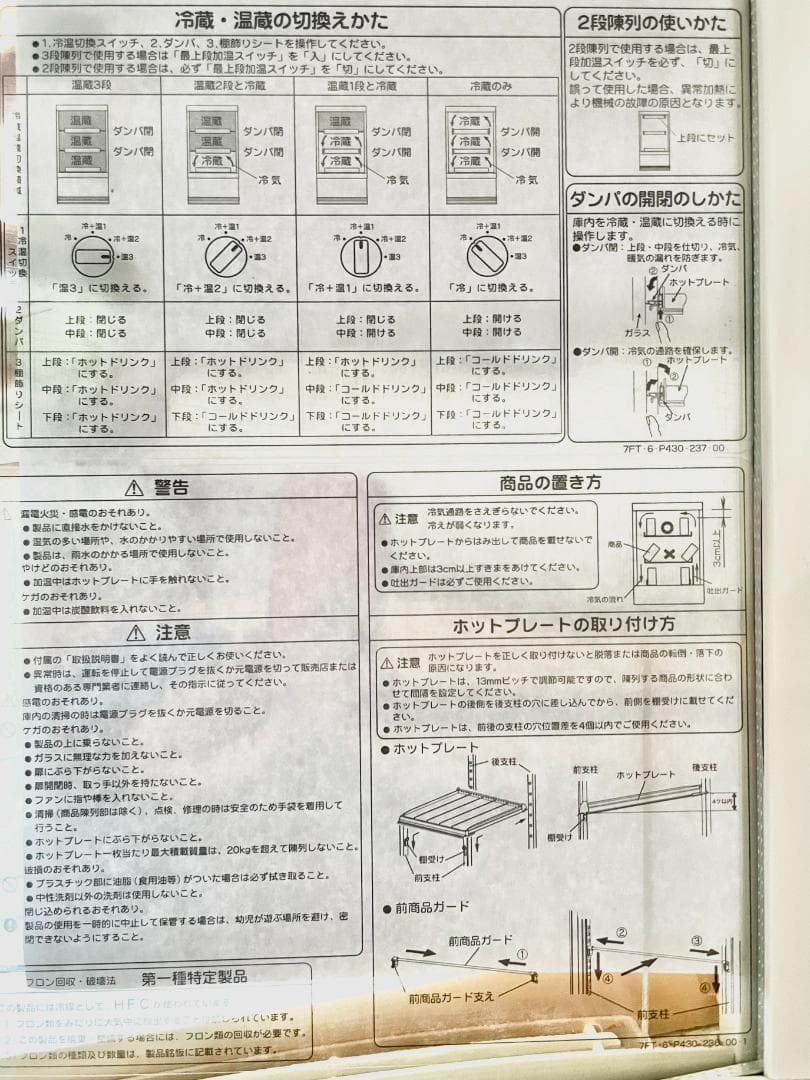 冷蔵・温蔵の切換えかた
●1.冷温切換スイッチ、2.ダンパ、3.棚飾りシートを操作してください。
●3段陳列で使用する場合は「最上段加温スイッチ」を「入」にしてください。
●2段陳列で使用する場合は、必ず「最上段加温スイッチ」を「切」にしてください。
温蔵3段
温蔵2段と冷蔵
温蔵1段と冷蔵
冷蔵のみ
温蔵
温蔵
温蔵
ダンパ閉
ダンパ閉
温蔵
温蔵
冷蔵
ダンパ閉
ダンパ閉
冷気
温蔵
冷蔵
冷蔵
ダンパ閉
ダンパ開
冷気
冷蔵
冷蔵
冷蔵
ダンパ開
ダンパ開
冷気
1冷温切換スイッチ
冷 冷+温1 冷+温2 温3
「温3」に切換える。
冷 冷+温1 冷+温2 温3
「冷+温2」に切換える。
冷 冷+温1 冷+温2 温3
「冷+温1」に切換える。
冷 冷+温1 冷+温2 温3
「冷」に切換える。
2ダンパ
上段:閉じる
中段:閉じる
上段:閉じる
中段:閉じる
上段:閉じる
中段:開ける
上段:開ける
中段:開ける
3棚飾りシート
上段:「ホットドリンク」
にする。
中段:「ホットドリンク」
にする。
下段:「ホットドリンク」
にする。
上段:「ホットドリンク」
にする。
中段:「ホットドリンク」
にする。
下段:「コールドドリンク」
にする。
上段:「ホットドリンク」
にする。
中段:「コールドドリンク」
にする。
下段:「コールドドリンク」
にする。
上段:「コールドドリンク」
にする。
中段:「コールドドリンク」
にする。
下段:「コールドドリンク」
にする。
2段陳列の使いかた
2段陳列で使用する場合は、最上
段加温スイッチを必ず、「切」に
してください。
誤って使用した場合、異常加熱に
より機械の故障の原因となります。
上段にセット
ダンパの開閉のしかた
庫内を冷蔵・温蔵に切換える時に
操作します。
●ダンパ閉:上段・中段を仕切り、冷気、
暖気の漏れを防ぎます。
②
ダンパ
ホットプレート
ガラス
①
●ダンパ開:冷気の通路を確保します。
①
ホットプレート
②
ダンパ
7FT・6・P430-237・00
⚠ 警告
漏電火災・感電のおそれあり。
●製品に直接水をかけないこと。
●湿気の多い場所や、水のかかりやすい場所で使用しないこと。
●製品は、雨水のかかる場所で使用しないこと。
やけどのおそれあり。
●加温中はホットプレートに手を触れないこと。
ケガのおそれあり。
●加温中は炭酸飲料を入れないこと。
⚠ 注意
●付属の「取扱説明書」をよく読んで正しくお使いください。
●異常時は、運転を停止して電源プラグを抜くか元電源を切って販売店または
資格のある専門業者に連絡し、その指示に従ってください。
感電のおそれあり。
庫内の清掃の時は電源プラグを抜くか元電源を切ること。
ケガのおそれあり。
●製品の上に乗らないこと。
●ガラスに無理な力を加えないこと。
●扉にぶら下がらないこと。
●扉開閉時、取っ手以外を持たないこと。
●ファンに指や棒を入れないこと。
●清掃(商品陳列部は除く)、点検、修理の時は安全のため手袋を着用して
行うこと。
●ホットプレートにぶら下がらないこと。
●ホットプレート一枚当たり最大積載質量は、20kgを超えて陳列しないこと。
破損のおそれあり。
●プラスチック部に油脂(食用油等)がついた場合は必ず拭き取ること。
●中性洗剤以外の洗剤は使用しないこと。
閉じ込められるおそれあり。
製品の使用を一時的に中止して保管する場合は、幼児が遊ぶ場所を避け、密
閉できないようにすること。
フロン回収・破壊法 第一種特定製品
この製品には冷媒として、HFCが使われています
フロン類をみだりに大気中に放出することは禁じられています。
この製品を廃棄・整備する場合には、フロン類の回収が必要です。
フロン類の種類及び数量は、製品銘板に記載されています。
商品の置き方
⚠注意
冷気通路をさえぎらないでください。
冷えが弱くなります。
●ホットプレートからはみ出して商品を載せないで
ください。
●庫内上部は3cm以上すきまをあけてください。
●吐出ガードは必ずご使用ください。
商品
3cm以上
冷気の流れ
吐出ガード
ホットプレートの取り付け方
⚠注意
ホットプレートを正しく取り付けないと脱落または商品の転倒・落下の
原因になります。
●ホットプレートは、13mmピッチで調節可能ですので、陳列する商品の形状に合わ
せて間隔を設定してください。
●ホットプレートの後側を後支柱の穴に差し込んでから、前側を棚受けに載せてくだ
さい。
●ホットプレートは、前後の支柱の穴位置差を4個以内でご使用ください。
●ホットプレート
後支柱
棚受け
前支柱
前支柱
ホットプレート
後支柱
4ケ以内
棚受け
●前商品ガード
前商品ガード
①
前商品ガード支え
②
③
④
④
前支柱
7FT・6・P430-236・00・1